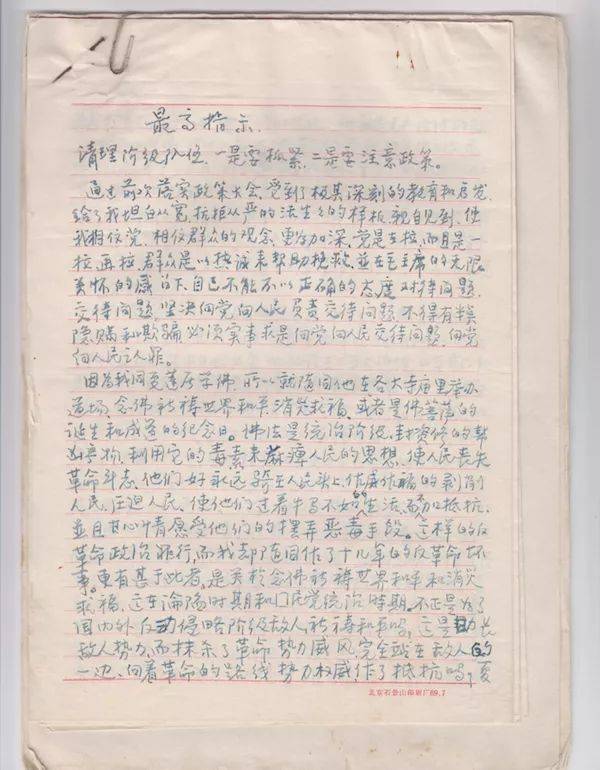 最高指示.
清理阶级队伍，一是要抓紧，二是要注意政策。
通过前次落实政策大会，受到了极其深刻的教育和启发，
给了我坦白从宽，抗拒从严的活生生的样板，亲自见到，使
我相信党，相信群众的观念，更加加深，党是在拉，而且是一
拉再拉，群众是以热诚来帮助挽救，並在毛主席的无限
关怀的感召下，自己不能不以正确的态度对待问题，
交待问题，坚决向党向人民负责交待问题，不得有半点
隐瞒和欺骗必须实事求是向党向人民交待问题，向党
向人民认罪。
因为我同夏莲居学佛，所以就随同他在各大寺庙里举办
道场，念佛祈祷世界和平消灾求福，或者是佛菩萨的
诞生和成道的纪念日。佛法是统治阶级，封资修的帮
凶产物，利用它的毒素来麻痺人民的思想，使人民丧失
革命斗志，他们好永远骑在人民头上，作威作福的剥削
人民，压迫人民，使他们过着牛马不如的生活，不加抵抗，
並且甘心情愿受他们的摆弄恶毒手段。这样的反
革命政治罪行，而我却随同作了十几年的反革命坏
事。更有甚于此者，是关於念佛祈祷世界和平和消灾
求福，这在沦陷时期和国民党统治时期，不正是为了
国内外反动侵略阶级敌人祈祷和平吗，这是助长
敌人势力，而抹杀了革命势力威风完全站在敌人的
一边，向着革命的路线势力权威作了抵抗吗，夏
北京石景山印刷厂69.7